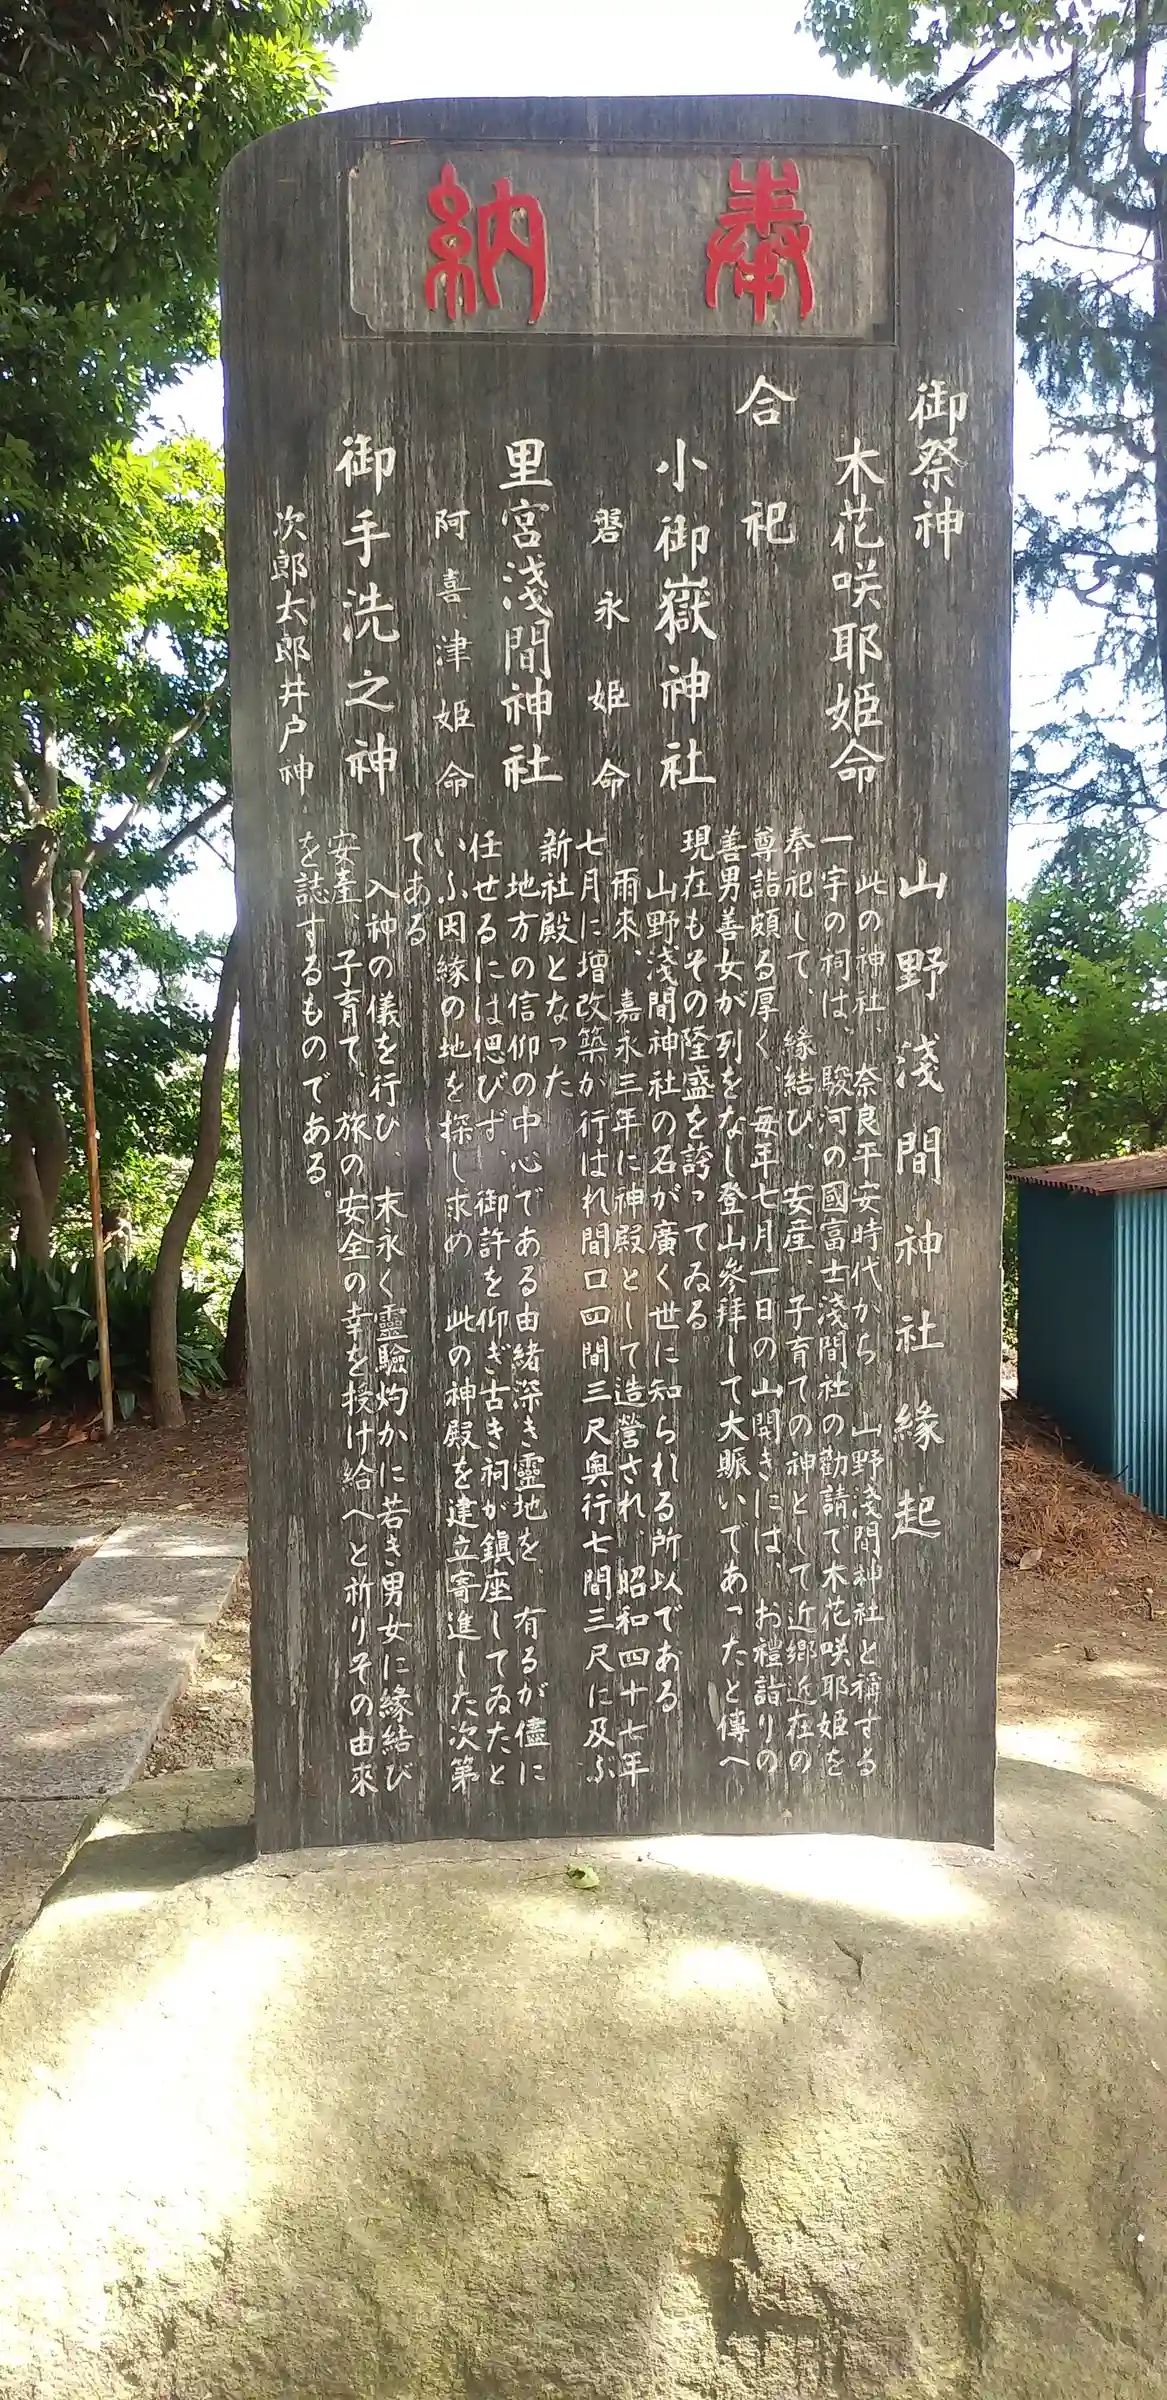 奉納
御祭神
木花咲耶姫命
合祀
小御嶽神社
磐永姫命
里宮浅間神社
阿喜津姫命
御手洗之神
次郎太郎井戸神
山野淺間神社緣起
此の神社、奈良平安時代から山野淺間神社と稱する
一宇の祠は、駿河の國富士淺間社の勸請で木花咲耶姫を
奉祀して、緣結び、安産、子育ての神として近郷近在の
尊詣頗る厚く、毎年七月一日の山開きには、お禮詣りの
善男善女が列をなし登山參拜して大賑いであったと傳へ
現在もその隆盛を誇ってゐる。
山野淺間神社の名が廣く世に知られる所以である
雨來、嘉永三年に神殿として造營され、昭和四十七年
七月に増改築が行はれ間口四間三尺奥行七間三尺に及ぶ
新社殿となった
地方の信仰の中心である由緒深き靈地を、有るが儘に
任せるには偲びず、御許を仰ぎ古き祠が鎮座してゐたと
いふ因緣の地を探し求め、此の神殿を建立寄進した次第
である
入神の儀を行ひ、末永く靈驗灼かに若き男女に緣結び
安産、子育て、旅の安全の幸を授け給へと祈りその由來
を誌するものである。